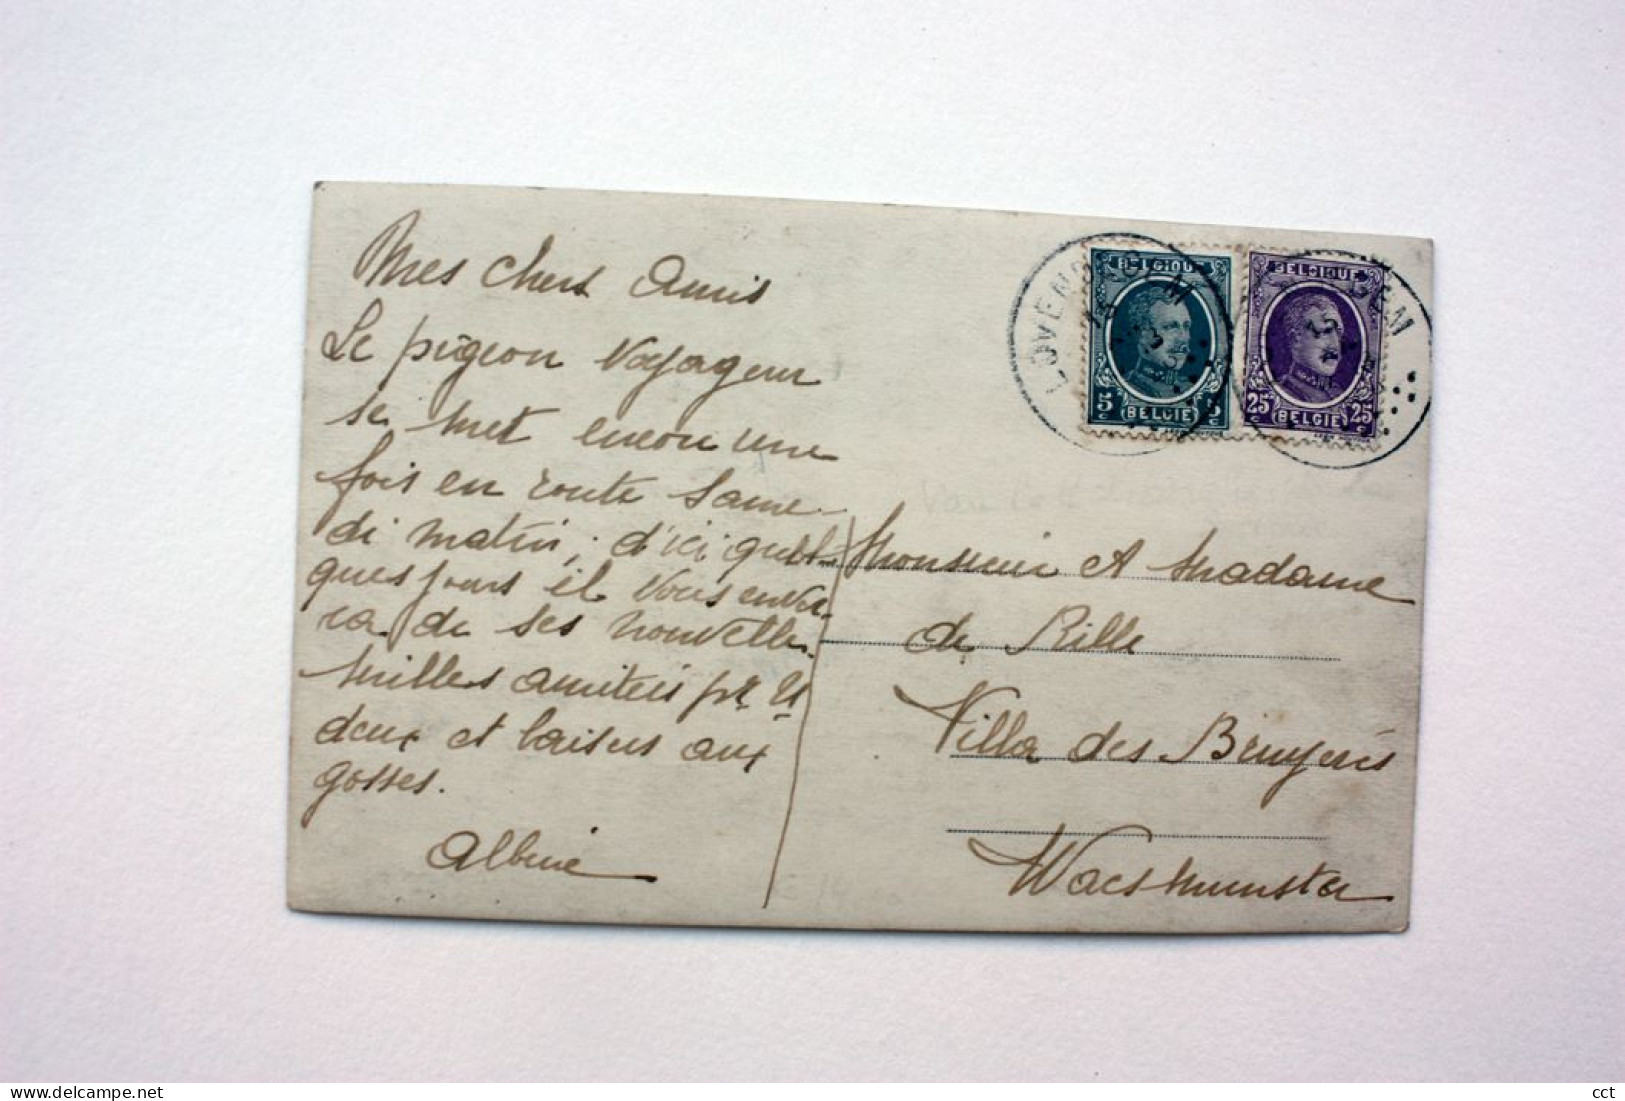 Mes chers Amis
Le pigeon Voyageur
se met encore une
fois en route Same-
di matin, d'ici quel-
ques jours il vous enver-
ra de ses nouvelles.
Milles amitiés pr Vs
deux et baisers aux
gosses.
Albine
LOVENDEGEM
BELGIQUE
5c 5c
BELGIE
BELGIQUE
25c 25c
BELGIE
Monsieur et Madame
de Rille
Villa des Bruyères
Waesmunster
delcampe.net
cct